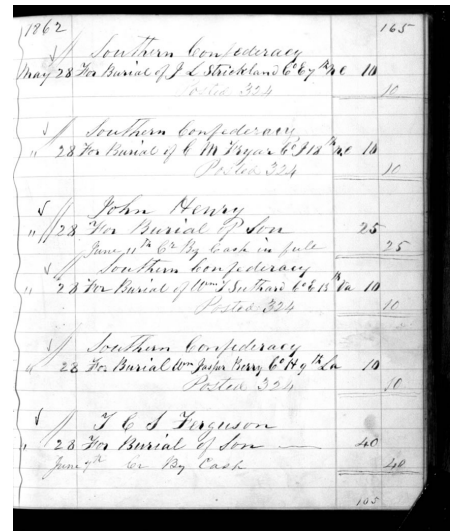 1862 165
Southern Confederacy
May 28 For Burial of J L Strickland Co E 7th N C 10
Posted 324 10
Southern Confederacy
" 28 For Burial of C M Co 18th N C 10
Posted 324 10
John Henry
" 28 For Burial of Son 25
June 11th Cr By Cash in full 25
Southern Confederacy
" 28 For Burial of Wm J Suthard Co E 13th Va 10
Posted 324 10
Southern Confederacy
" 28 For Burial Wm Jasper Berry Co H 9th La 10
Posted 324 10
T C S Ferguson
" 28 For Burial of Son 40
June 7th Cr By Cash 40
105